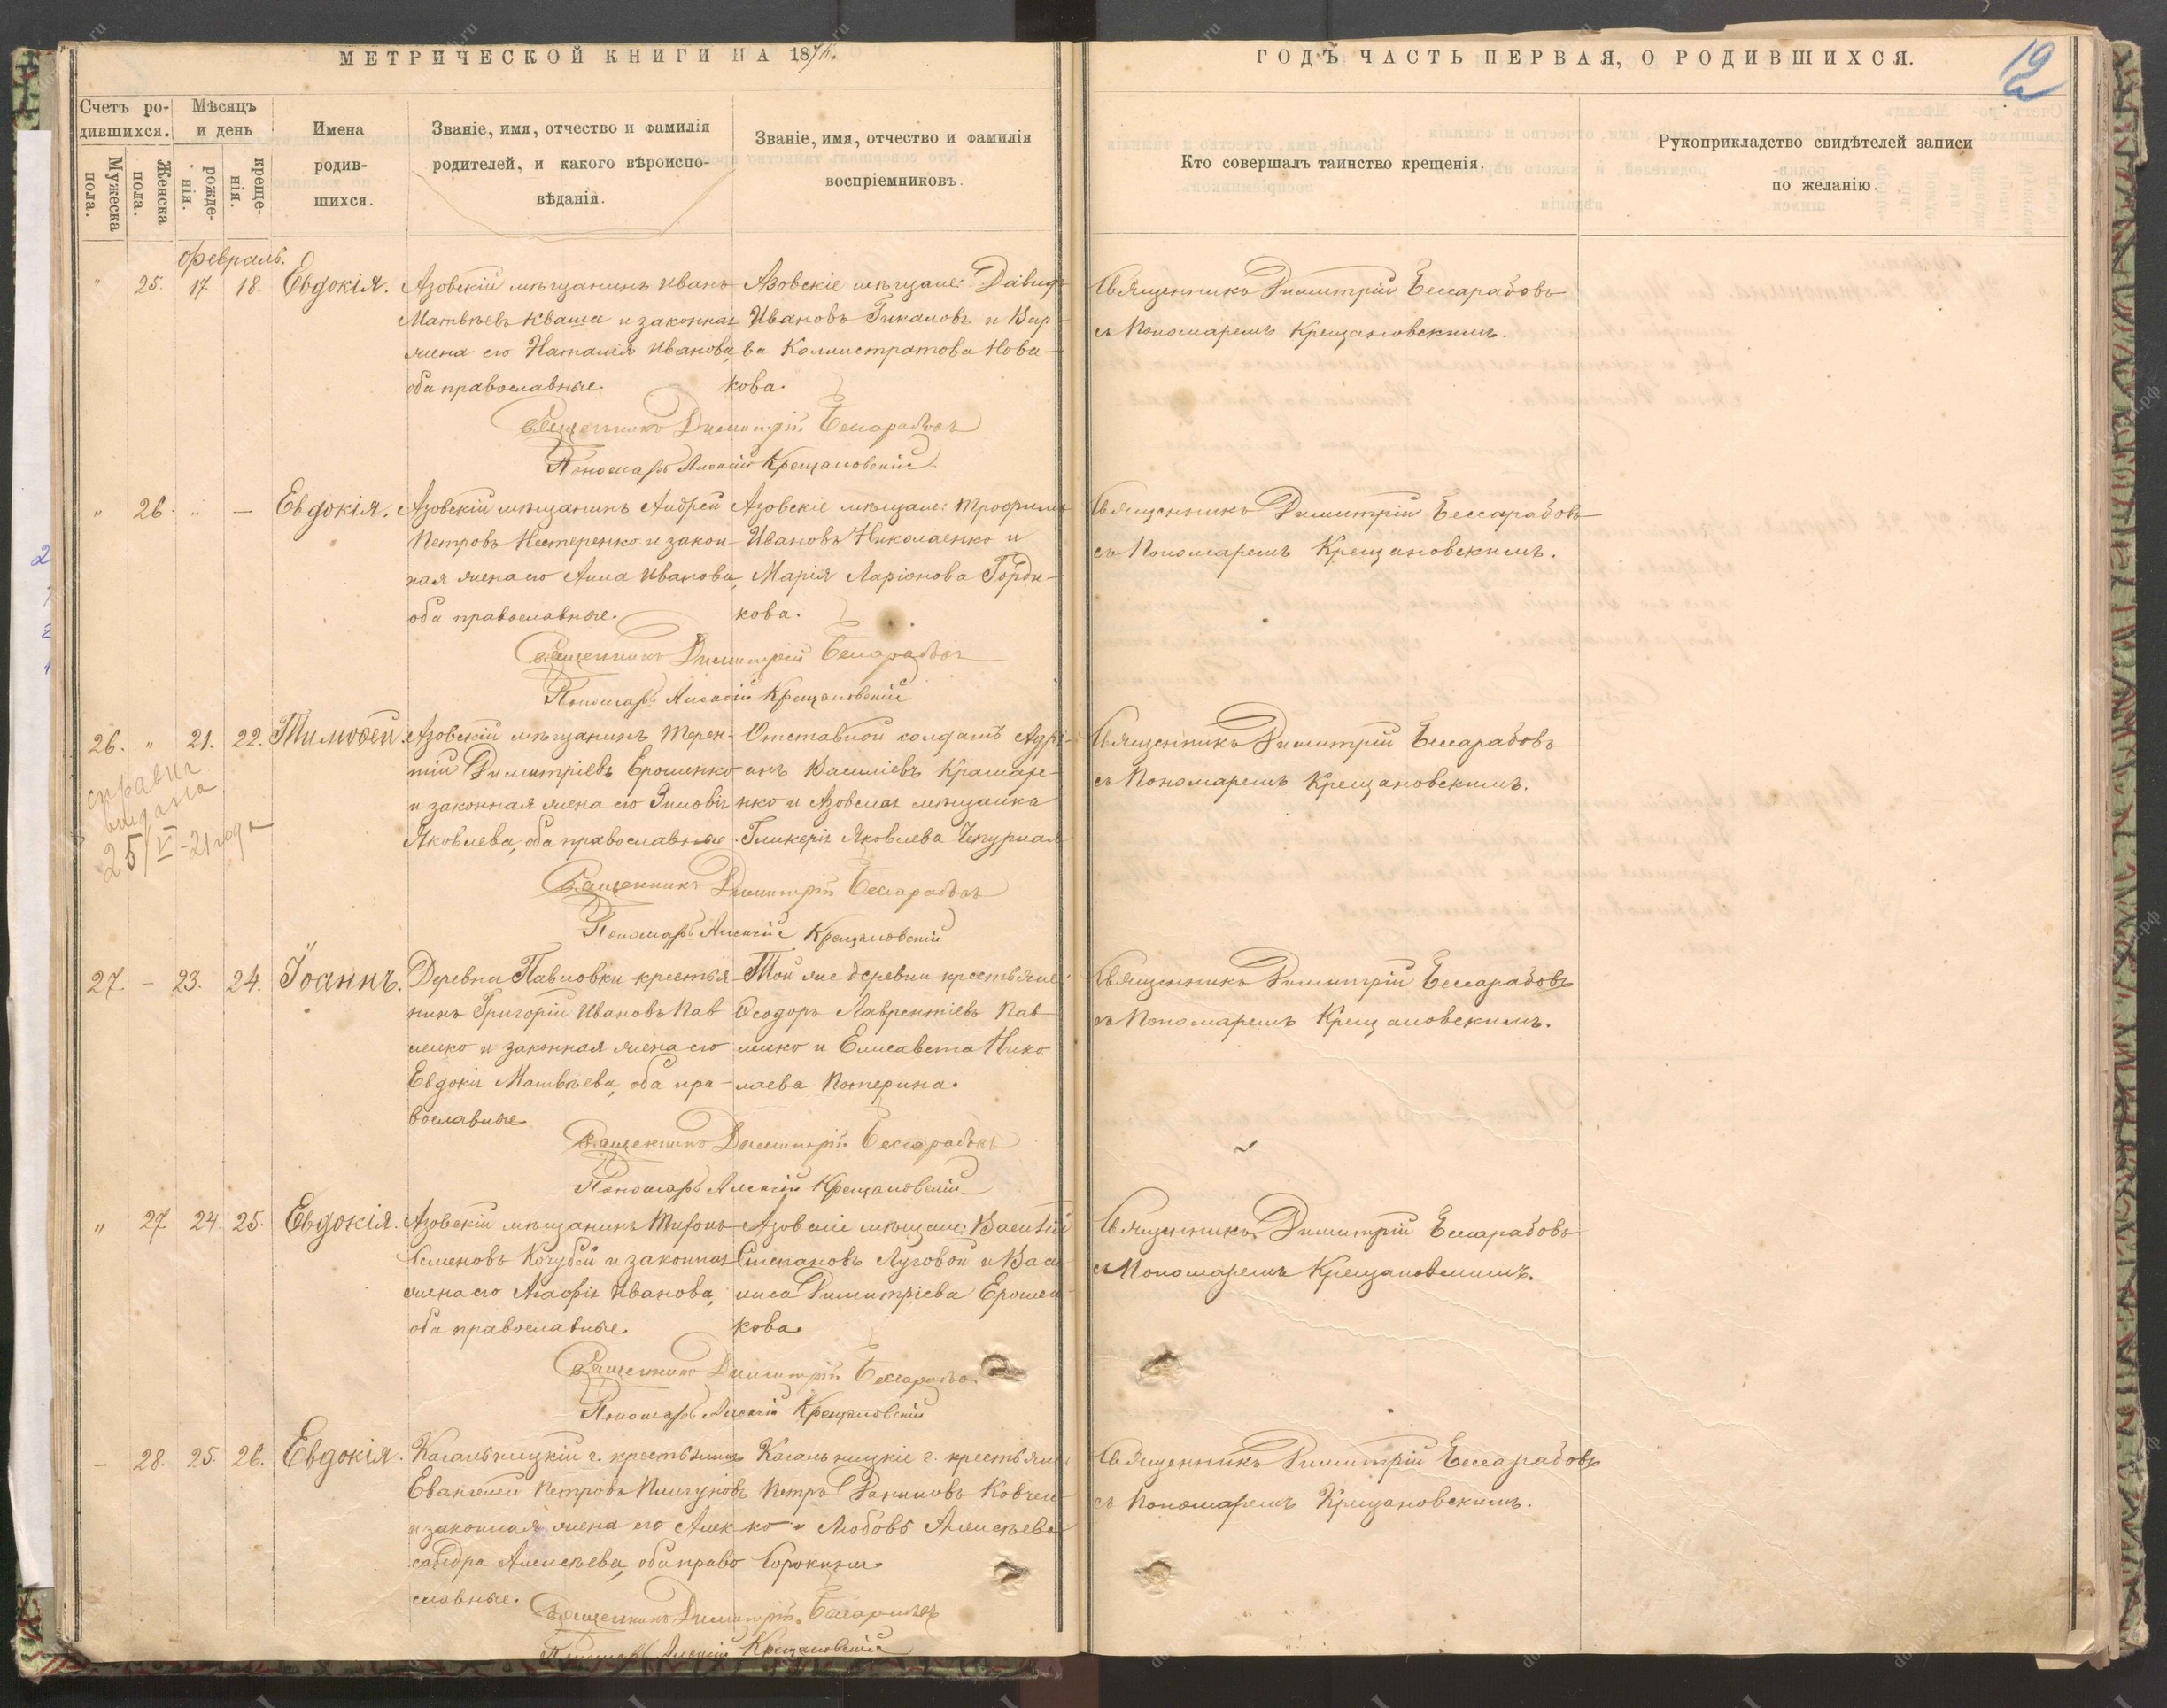 МЕТРИЧЕСКОЙ КНИГИ НА 18
ГОДЪ ЧАСТЬ ПЕРВАЯ, О РОДИВШИХСЯ.
12
Счетъ ро-
дившихся.
Мѣсяцъ
и день
Мужеска
пола.
Женска
пола.
рожде-
нія.
креще-
нія.
Имена
родив-
шихся.
Званіе, имя, отчество и фамилія
родителей, и какого вѣроиспо-
вѣданія.
Званіе, имя, отчество и фамилія
воспріемниковъ.
Кто совершалъ таинство крещенія.
Рукоприкладство свидѣтелей записи
по желанію.
Февраль.
" 25. 17. 18. Евдокія.
Азовскій мѣщанинъ Иванъ
Матвѣевъ Кваша и законная
жена его Наталія Иванова,
оба православные.
Азовскіе мѣщане: Давидъ
Ивановъ Гикаловъ и Вар-
ва Каллистратова Нова-
кова.
Священникъ Димитрій Бессарабовъ
съ Пономаремъ Крещановскимъ.
Священникъ Димитрій Бессарабовъ
Пономарь Алексій Крещановскій
" 26. " — Евдокія.
Азовскій мѣщанинъ Андрей
Петровъ Нестеренко и закон-
ная жена его Анна Иванова,
оба православные.
Азовскіе мѣщане: Трофимъ
Ивановъ Николаенко и
Марія Ларіонова Горди-
кова.
Священникъ Димитрій Бессарабовъ
съ Пономаремъ Крещановскимъ.
Священникъ Димитрій Бессарабовъ
Пономарь Алексій Крещановскій
26. " 21. 22. Тимоѳей.
справка
выдана
25/V-21 года
Азовскій мѣщанинъ Терен-
тій Димитріевъ Ерошенко
и законная жена его Зиновія
Яковлева, оба православные.
Отставной солдатъ Адрі-
анъ Василіевъ Крамаре-
нко и Азовская мѣщанка
Гликерія Яковлева Чепурная
Священникъ Димитрій Бессарабовъ
съ Пономаремъ Крещановскимъ.
Священникъ Димитрій Бессарабовъ
Пономарь Алексій Крещановскій
27. — 23. 24. Іоаннъ.
Деревни Павловки крестья-
нинъ Григорій Ивановъ Пав
ленко и законная жена его
Евдокія Матвѣева, оба пра-
вославные
Той же деревни крестьяне:
Ѳеодоръ Лаврентіевъ Пав-
ленко и Елисавета Нико
лаева Потерина.
Священникъ Димитрій Бессарабовъ
съ Пономаремъ Крещановскимъ.
Священникъ Димитрій Бессарабовъ
Пономарь Алексій Крещановскій
" 27 24 25. Евдокія.
Азовскій мѣщанинъ Тифонъ
Семеновъ Кочубей и законная
жена его Агафія Иванова,
оба православные.
Азовскіе мѣщане: Василій
Степановъ Луговой и Вас
лиса Димитріева Ерошен
кова.
Священникъ Димитрій Бессарабовъ
съ Пономаремъ Крещановскимъ.
Священникъ Димитрій Бессарабовъ
Пономарь Алексій Крещановскій
— 28. 25. 26. Евдокія.
Кагальницкій г. крестьянинъ
Евангелій Петровъ
и законная жена его Алек
сандра Алексѣева, оба право
славные.
Кагальницкіе г. крестьяне
Петръ Даниловъ Ковчен
ко и Любовь Алексѣева
Сорокина.
Священникъ Димитрій Бессарабовъ
съ Пономаремъ Крещановскимъ.
Священникъ Димитрій Бессарабовъ
Пономарь Алексій Крещановскій